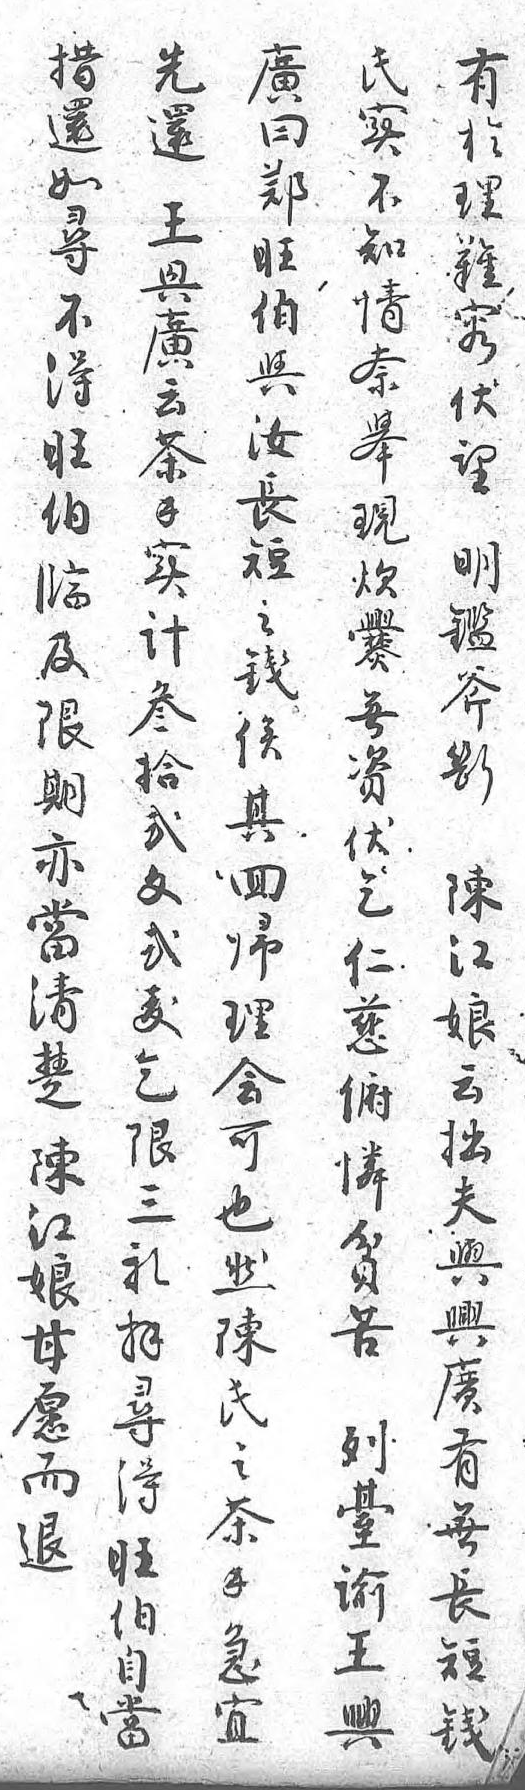 有於理難容伏望 明鑑斧斷 陳江娘云拙夫與興廣有無長短錢
氏実不知情奈舉現炊爨無资伏乞仁慈俯憐貧苦 列臺諭王興
廣曰鄭旺伯與汝長短之錢俟其囬帰理会可也然陳氏之茶𠄌急宜
先還 王興廣云茶𠄌実计叁拾弍文弍夌乞限三礼拜尋得旺伯自當
措還如尋不得旺伯臨及限期亦當清楚 陳江娘甘愿而退